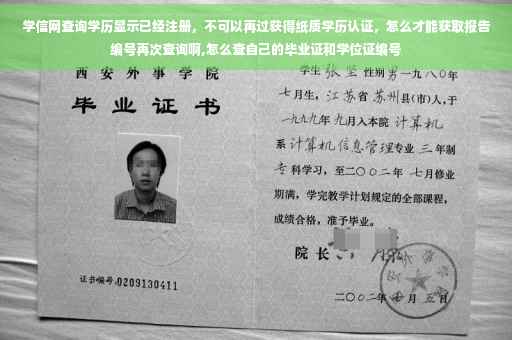 学信网查询学历显示已经注册，不可以再过获得纸质学历认证，怎么才能获取报告
编号再次查询啊,怎么查自己的毕业证和学位证编号
西安外事学院
毕业证书
证书编号:0209130411
学生张坚性别男一九八〇年
七月生，江苏省苏州县(市)人，于
一九九九年九月入本院计算机
系计算机信息管理专业三年制
专科学习，至二〇〇二年七月修业
期满，学完教学计划规定的全部课程，
成绩合格，准予毕业。
院长
二〇〇二年七月五日